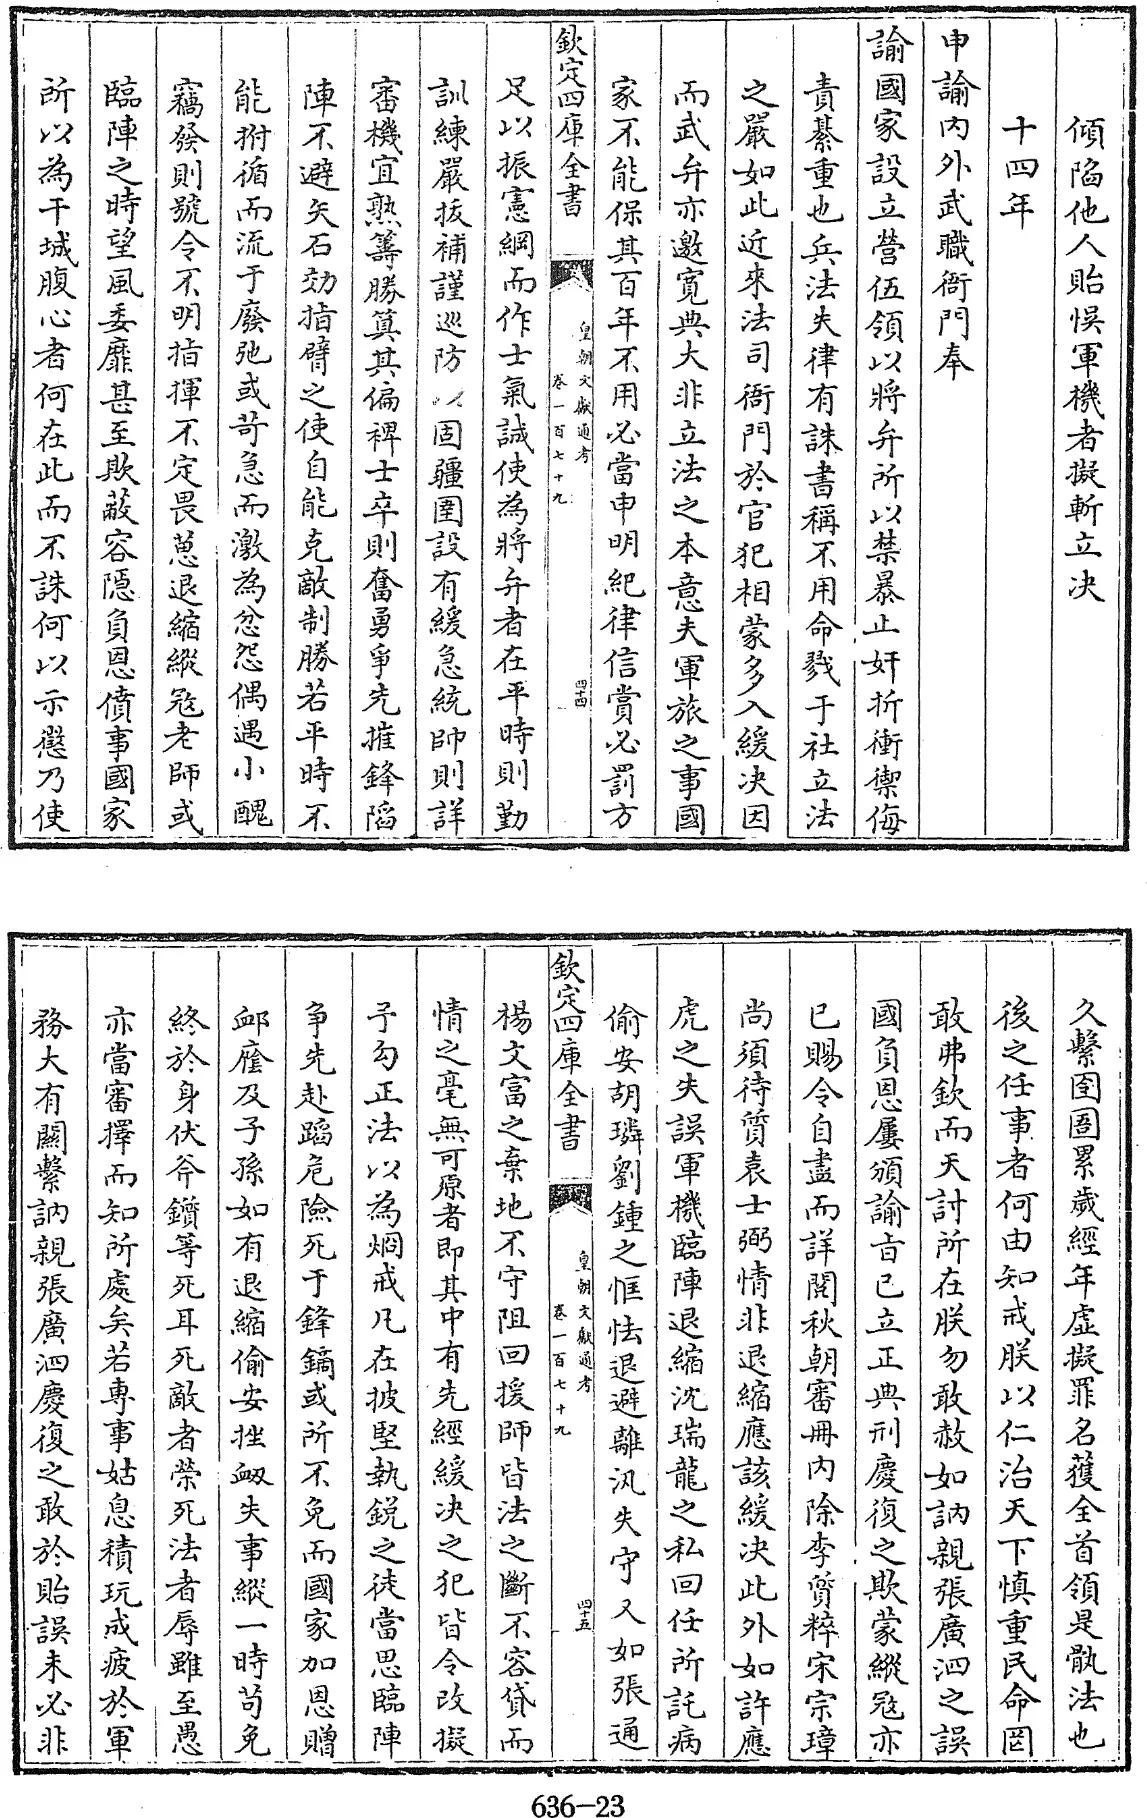 傾陷他人貽悞軍機者擬斬立决
十四年
申諭内外武職衙門奉
諭國家設立營伍領以將弁所以禁暴止奸折衝禦侮
責綦重也兵法失律有誅書稱不用命戮于社立法
之嚴如此近來法司衙門於官犯相蒙多入緩决因
而武弁亦邀寛典大非立法之本意夫軍旅之事國
家不能保其百年不用必當申明紀律信賞必罰方
欽定四庫全書
皇朝文獻通考
卷一百七十九
四十四
足以振憲綱而作士氣誠使為將弁者在平時則勤
訓練嚴拔補謹巡防以固疆圉設有緩急統帥則詳
審機宜熟籌勝算其偏裨士卒則奮勇爭先摧鋒陷
陣不避矢石効指臂之使自能克敵制勝若平時不
能拊循而流于廢弛或苛急而激為忿怨偶遇小醜
竊發則號令不明指揮不定畏葸退縮縱寇老師或
臨陣之時望風委靡甚至欺蔽容隱負恩僨事國家
所以為干城腹心者何在此而不誅何以示懲乃使
久繫囹圄累歲經年虚擬罪名獲全首領是骫法也
後之任事者何由知戒朕以仁治天下慎重民命罔
敢弗欽而天討所在朕勿敢赦如訥親張廣泗之誤
國負恩屢頒諭旨已立正典刑慶復之欺蒙縱寇亦
已賜令自盡而詳閲秋朝審冊内除李質粹宋宗璋
尚須待質袁士弼情非退縮應該緩决此外如許應
虎之失誤軍機臨陣退縮沈瑞龍之私回任所託病
偷安胡璘劉鍾之恇怯退避離汛失守又如張通
欽定四庫全書
皇朝文獻通考
卷一百七十九
四十五
楊文富之棄地不守阻回援師皆法之斷不容貸而
情之毫無可原者即其中有先經緩决之犯皆令改擬
予勾正法以為烱戒凡在披堅執鋭之徒當思臨陣
爭先赴蹈危險死于鋒鏑或所不免而國家加恩贈
䘏廕及子孫如有退縮偷安挫衂失事縱一時苟免
終於身伏斧鑕等死耳死敵者榮死法者辱雖至愚
亦當審擇而知所處矣若專事姑息積玩成疲於軍
務大有關繫訥親張廣泗慶復之敢於貽誤未必非
636-23